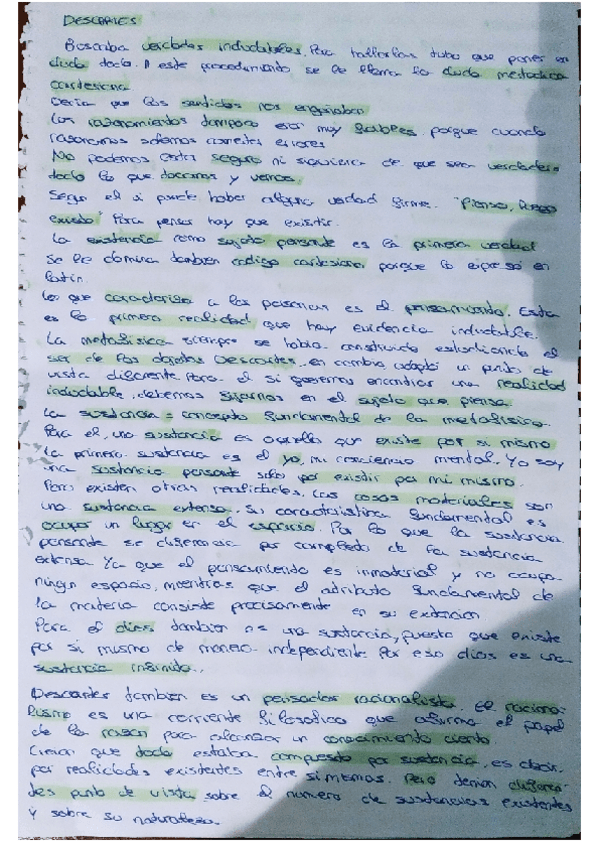 DESCARTES
Buscaba verdades indudables. Para hallarlas tubo que poner en
duda todo. A este procedimiento se le llama la duda metodica
cartesiana
Decia que los sentidos nos engañaban
Los razonamientos tampoco eran muy fiables porque cuando
razonamos podemos cometer errores
No podemos estar seguro ni siquiera de que sea verdadero
todo lo que tocamos y vemos.
Segun el si puede haber alguna verdad firme. "Pienso, luego
existo" Para pensar hay que existir.
La existencia como sujeto pensante es la primera verdad
se le domina tambien codigo cartesiano porque lo expresó en
latin.
Lo que caracteriza a las personas es el pensamiento. Esta
es la primera realidad que hay evidencia indudable.
La metafisica siempre se habia construido estudiando el
ser de los objetos Descartes, en cambio, adoptó un punto de
vista diferente. Para el si queremos encontrar una realidad
indudable, debemos fijarnos en el sujeto que piensa
La sustancia = concepto fundamental de la metafisica.
Para el, una sustancia es aquella que existe por si mismo
La primera sustancia es el yo, mi conciencia mental. Yo soy
una sustancia pensante solo por existir por mi mismo.
Pero existen otras realidades. Las cosas materiales son
una sustancia extensa. Su caracteristica fundamental es
ocupar un lugar en el espacio. Por lo que la sustancia
pensante se diferencia por completo de la sustancia
extensa Ya que el pensamiento es inmaterial y no ocupa
ningun espacio, mientras que el atributo fundamental de
la materia consiste precisamente en su extension
Para el dios tambien es una sustancia, puesto que existe
por si mismo de manera independiente Por eso dios es una
sustancia infinita.
Descartes tambien es un pensador racionalista. El raciona-
lismo es una corriente filosofica que afirma el papel
de la razon para alcanzar un conocimiento cierto.
Creian que todo estaba compuesto por sustancia, es decir,
por realidades existentes entre si mismas. Pero tenian diferen-
tes punto de vista sobre el numero de sustancias existentes
y sobre su naturaleza.